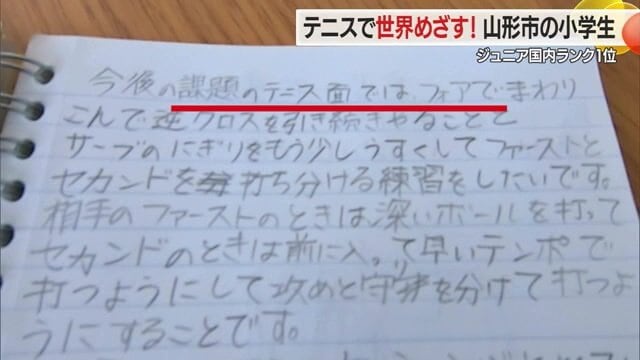 テニスで世界めざす！山形市の小学生
ジュニア国内ランク1位
今後の課題のテニス面では、フォアでまわり
こんで逆クロスを引き続きやることと
サーブのにぎりをもう少しうすくしてファーストと
セカンドを打ち分ける練習をしたいです。
相手のファーストのときは深いボールを打って
セカンドのときは前に入って早いテンポで
打つようにして攻めと守りを分けて打つよ
うにすることです。